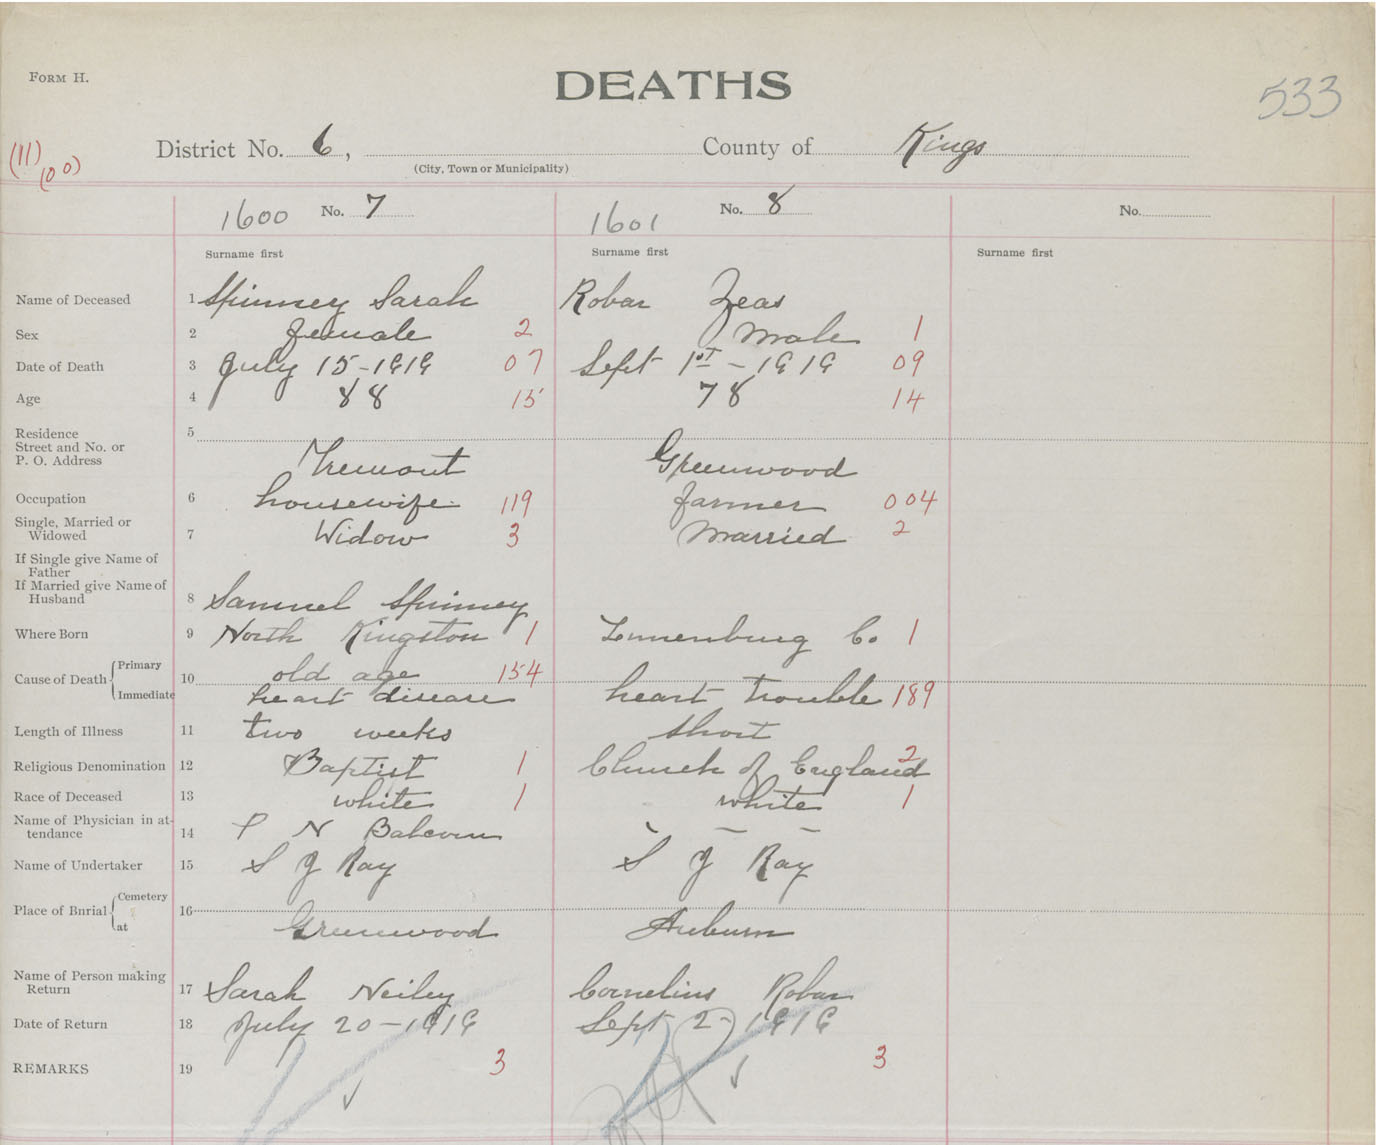 FORM H.
DEATHS
533
(11)
(00)
District No. 6, County of Kings
(City, Town or Municipality)
1600 No. 7 1601 No. 8 No.
Surname first Surname first Surname first
Name of Deceased 1 Spinney Sarah Robar Zeas
Sex 2 female 2 male 1
Date of Death 3 July 15-1919 07 Sept 1st - 1919 09
Age 4 88 15 78 14
Residence 5
Street and No. or
P. O. Address Tremont Greenwood
Occupation 6 housewife 119 farmer 004
Single, Married or
Widowed 7 Widow 3 Married 2
If Single give Name of
Father
If Married give Name of
Husband 8 Samuel Spinney
Where Born 9 North Kingston 1 Lunenburg Co 1
Cause of Death Primary 10 old age 154
Immediate heart disease heart trouble 189
Length of Illness 11 two weeks short
Religious Denomination 12 Baptist 1 Church of England 2
Race of Deceased 13 white 1 white 1
Name of Physician in at-
tendance 14 P N Balcom - -
Name of Undertaker 15 S J Ray S J Ray
Place of Bnrial Cemetery 16
at Greenwood Auburn
Name of Person making
Return 17 Sarah Neiley Cornelius Robar
Date of Return 18 July 20-1919 Sept 2 1919
REMARKS 19 3 3
✓ ✓